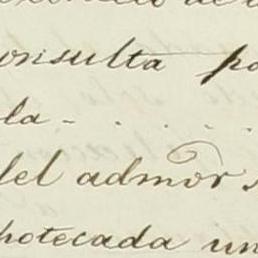 onsulta po
la - . . . .
del admor
potecada un